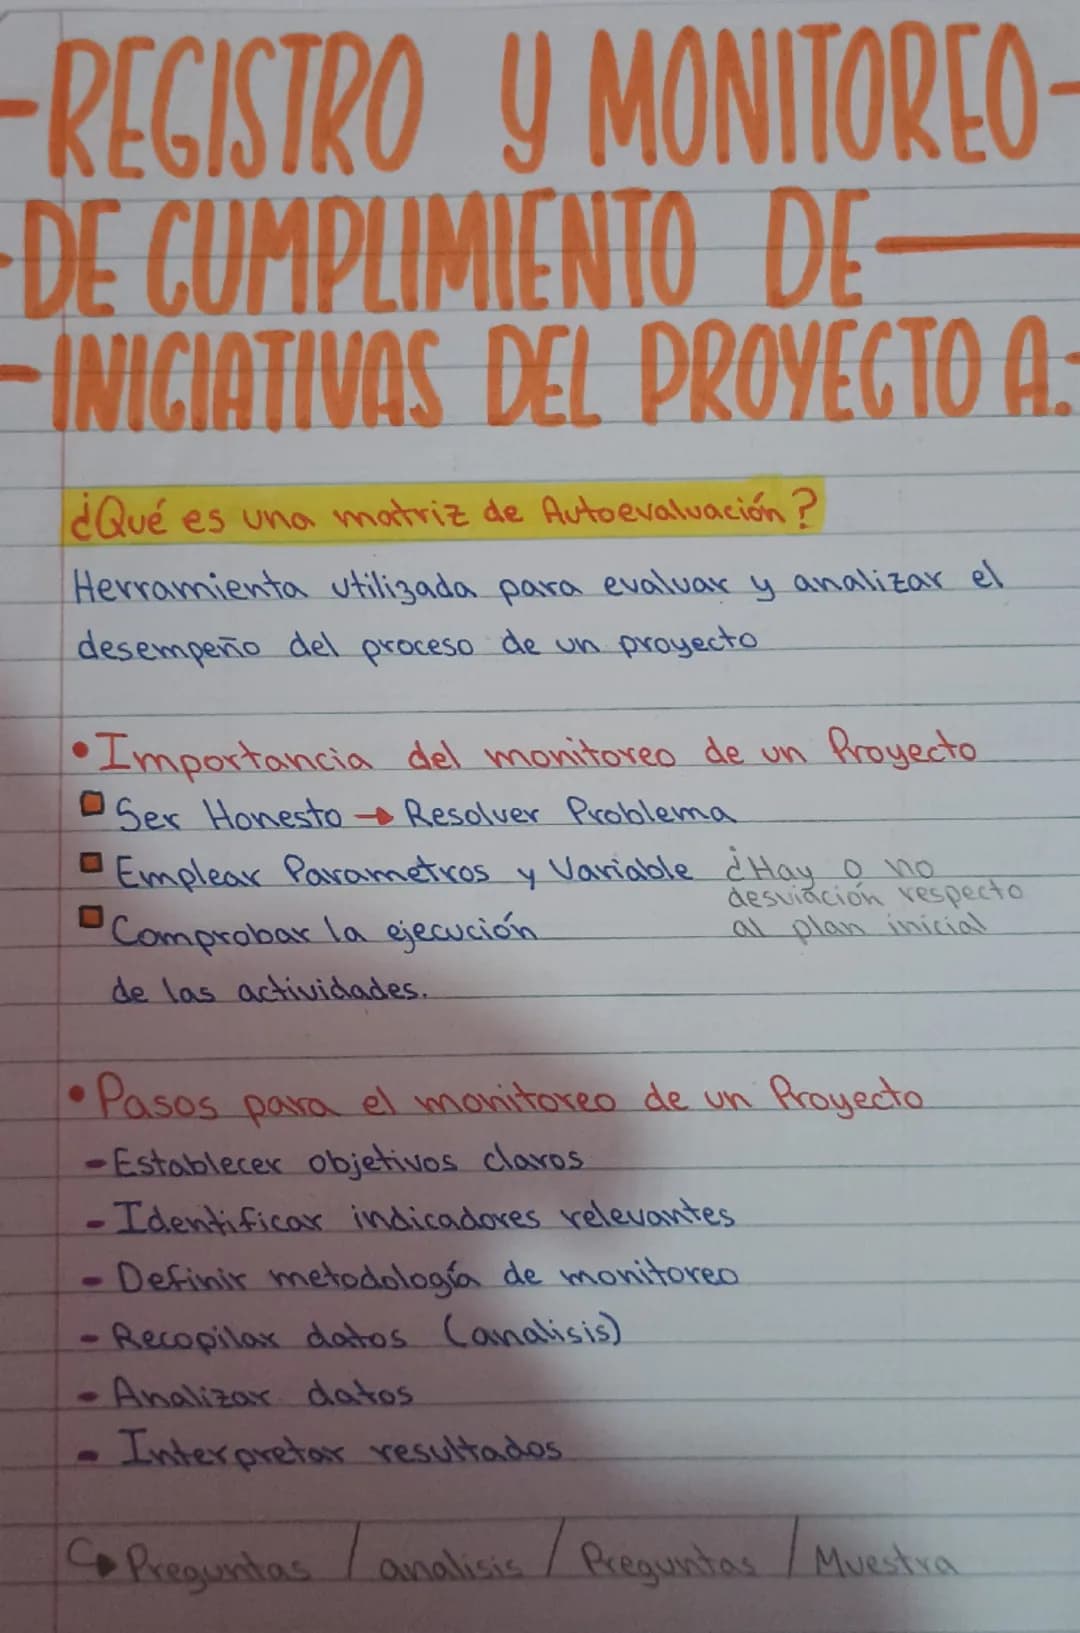 -REGISTRO Y MONITOREO-
-DE CUMPLIMIENTO DE-
-INICIATIVAS DEL PROYECTO A.-
¿Qué es una matriz de Autoevaluación?
Herramienta utilizada para evaluar y analizar el
desempeño del proceso de un proyecto
•Importancia del monitoreo de un Proyecto
Ser Honesto → Resolver Problema
Emplear Parametros y Variable
¿Hay o no
desviación respecto
al plan inicial
Comprobar la ejecución
de las actividades.
•Pasos para el monitoreo de un Proyecto
-Establecer objetivos claros
-Identificar indicadores relevantes
-Definir metodología de monitoreo
-Recopilar datos (analisis)
-Analizar datos
-Interpretar resultados
↪Preguntas / analisis / Preguntas / Muestra